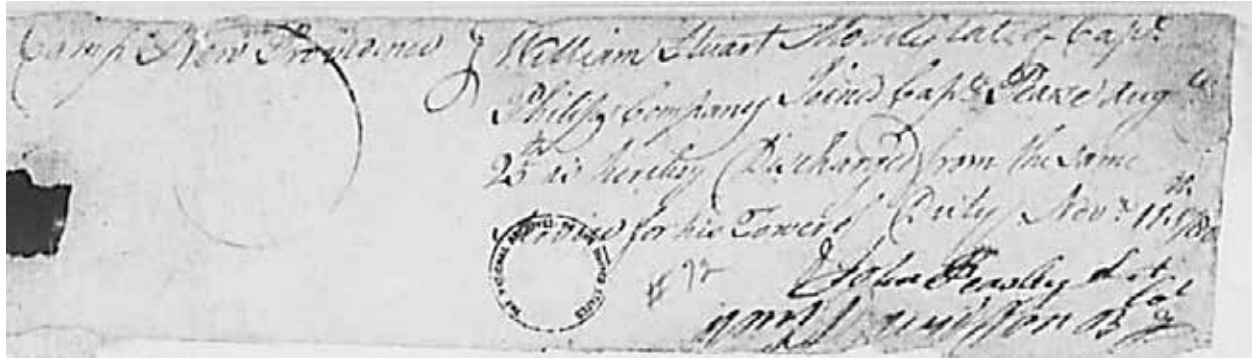 Camp New Providence } William Stuart Mosely late of Capt.
Philips Company Joined Capt. Peake Augt.
25th is hereby Discharged from the Same
Service for his Towere of Duty Novr. 11th 1780
#92
John Peasley Lut
Col
THE NATIONAL ARCHIVES OF THE UNITED STATES